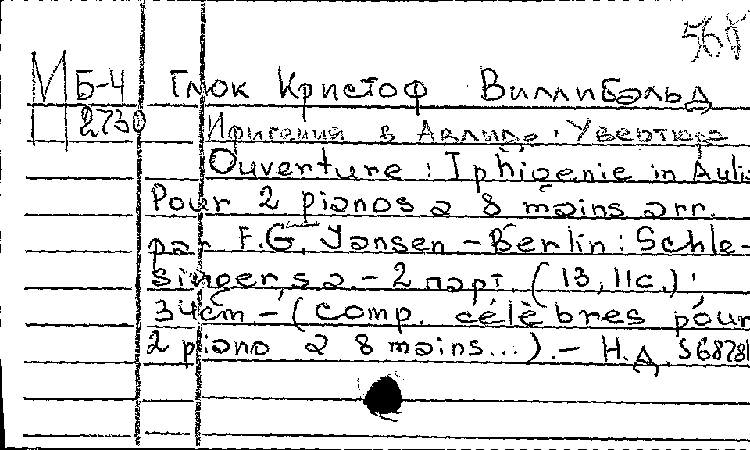 568
М Б-4 Глюк Кристоф Виллибальд
2730 Ифигения в Авлиде. Увертюра
Ouverture: Iphigenie in Aulis
Pour 2 pianos a 8 mains arr.
par F.G. Jansen - Berlin: Schle-
singer, s a - 2 парт. (13, 11с.);
34cm - (comp. célèbres pour
2 piano a 8 mains...). - Н.Д. 568781